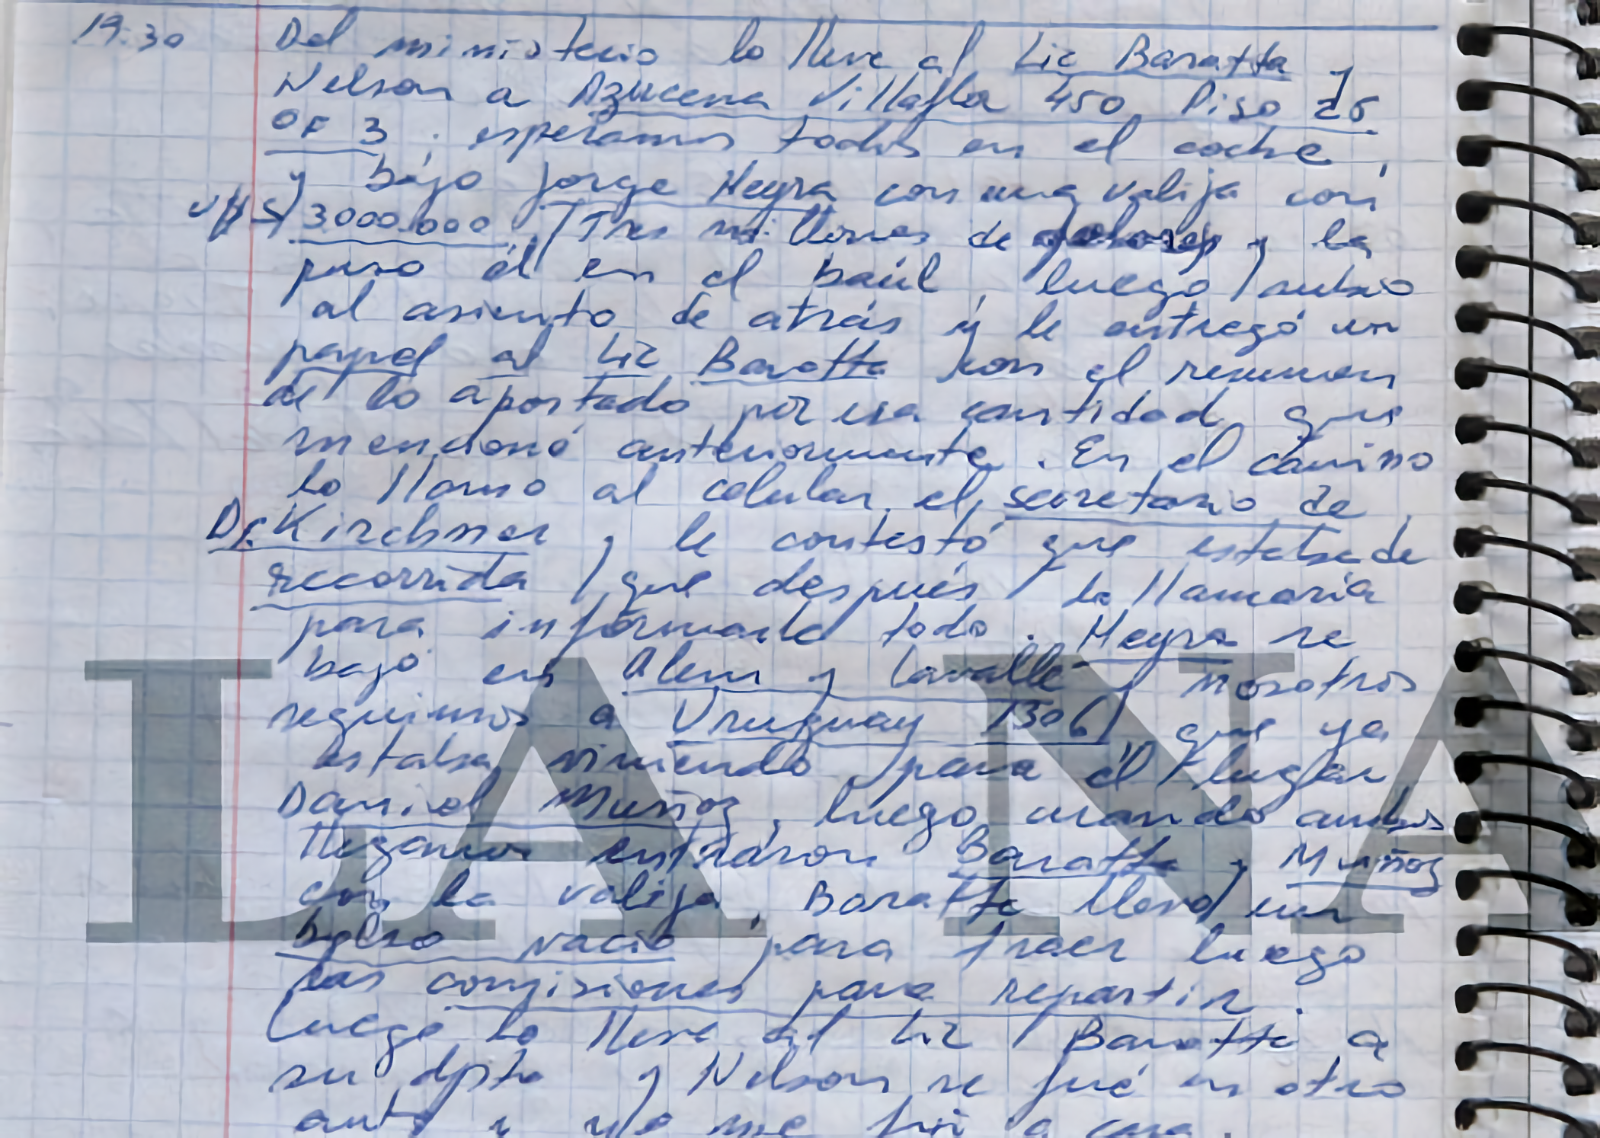 19:30 Del ministerio lo lleve al Lic Baratta y
Nelson a Azucena Villaflor 450 Piso 26
OF 3, esperamos todos en el coche,
y bajo Jorge Neyra con una valija con
U$S 3.000.000 (Tres millones de dolares) y la
puso él en el baúl, luego subio
al asiento de atrás y le entregó un
papel al Lic Baratta con el resumen
de lo aportado por esa cantidad que
mencioné anteriormente. En el camino
lo llamo al celular el secretario de
Dr. Kirchner, le contestó que estaba de
recorrida, que después lo llamaria
para informarle todo. Neyra se
bajó en Alem y Lavalle y nosotros
seguimos a Uruguay 1306, que ya
estaba viniendo para el lugar
Daniel Muñoz, luego cuando ambos
llegamos entraron Baratta y Muñoz
con la valija, Baratta llevó un
bolso vacio para traer luego
las comisiones para repartir
Luego lo lleve al Lic Baratta a
su dpto y Nelson se fué en otro
auto y yo me fui a casa.
LA NA